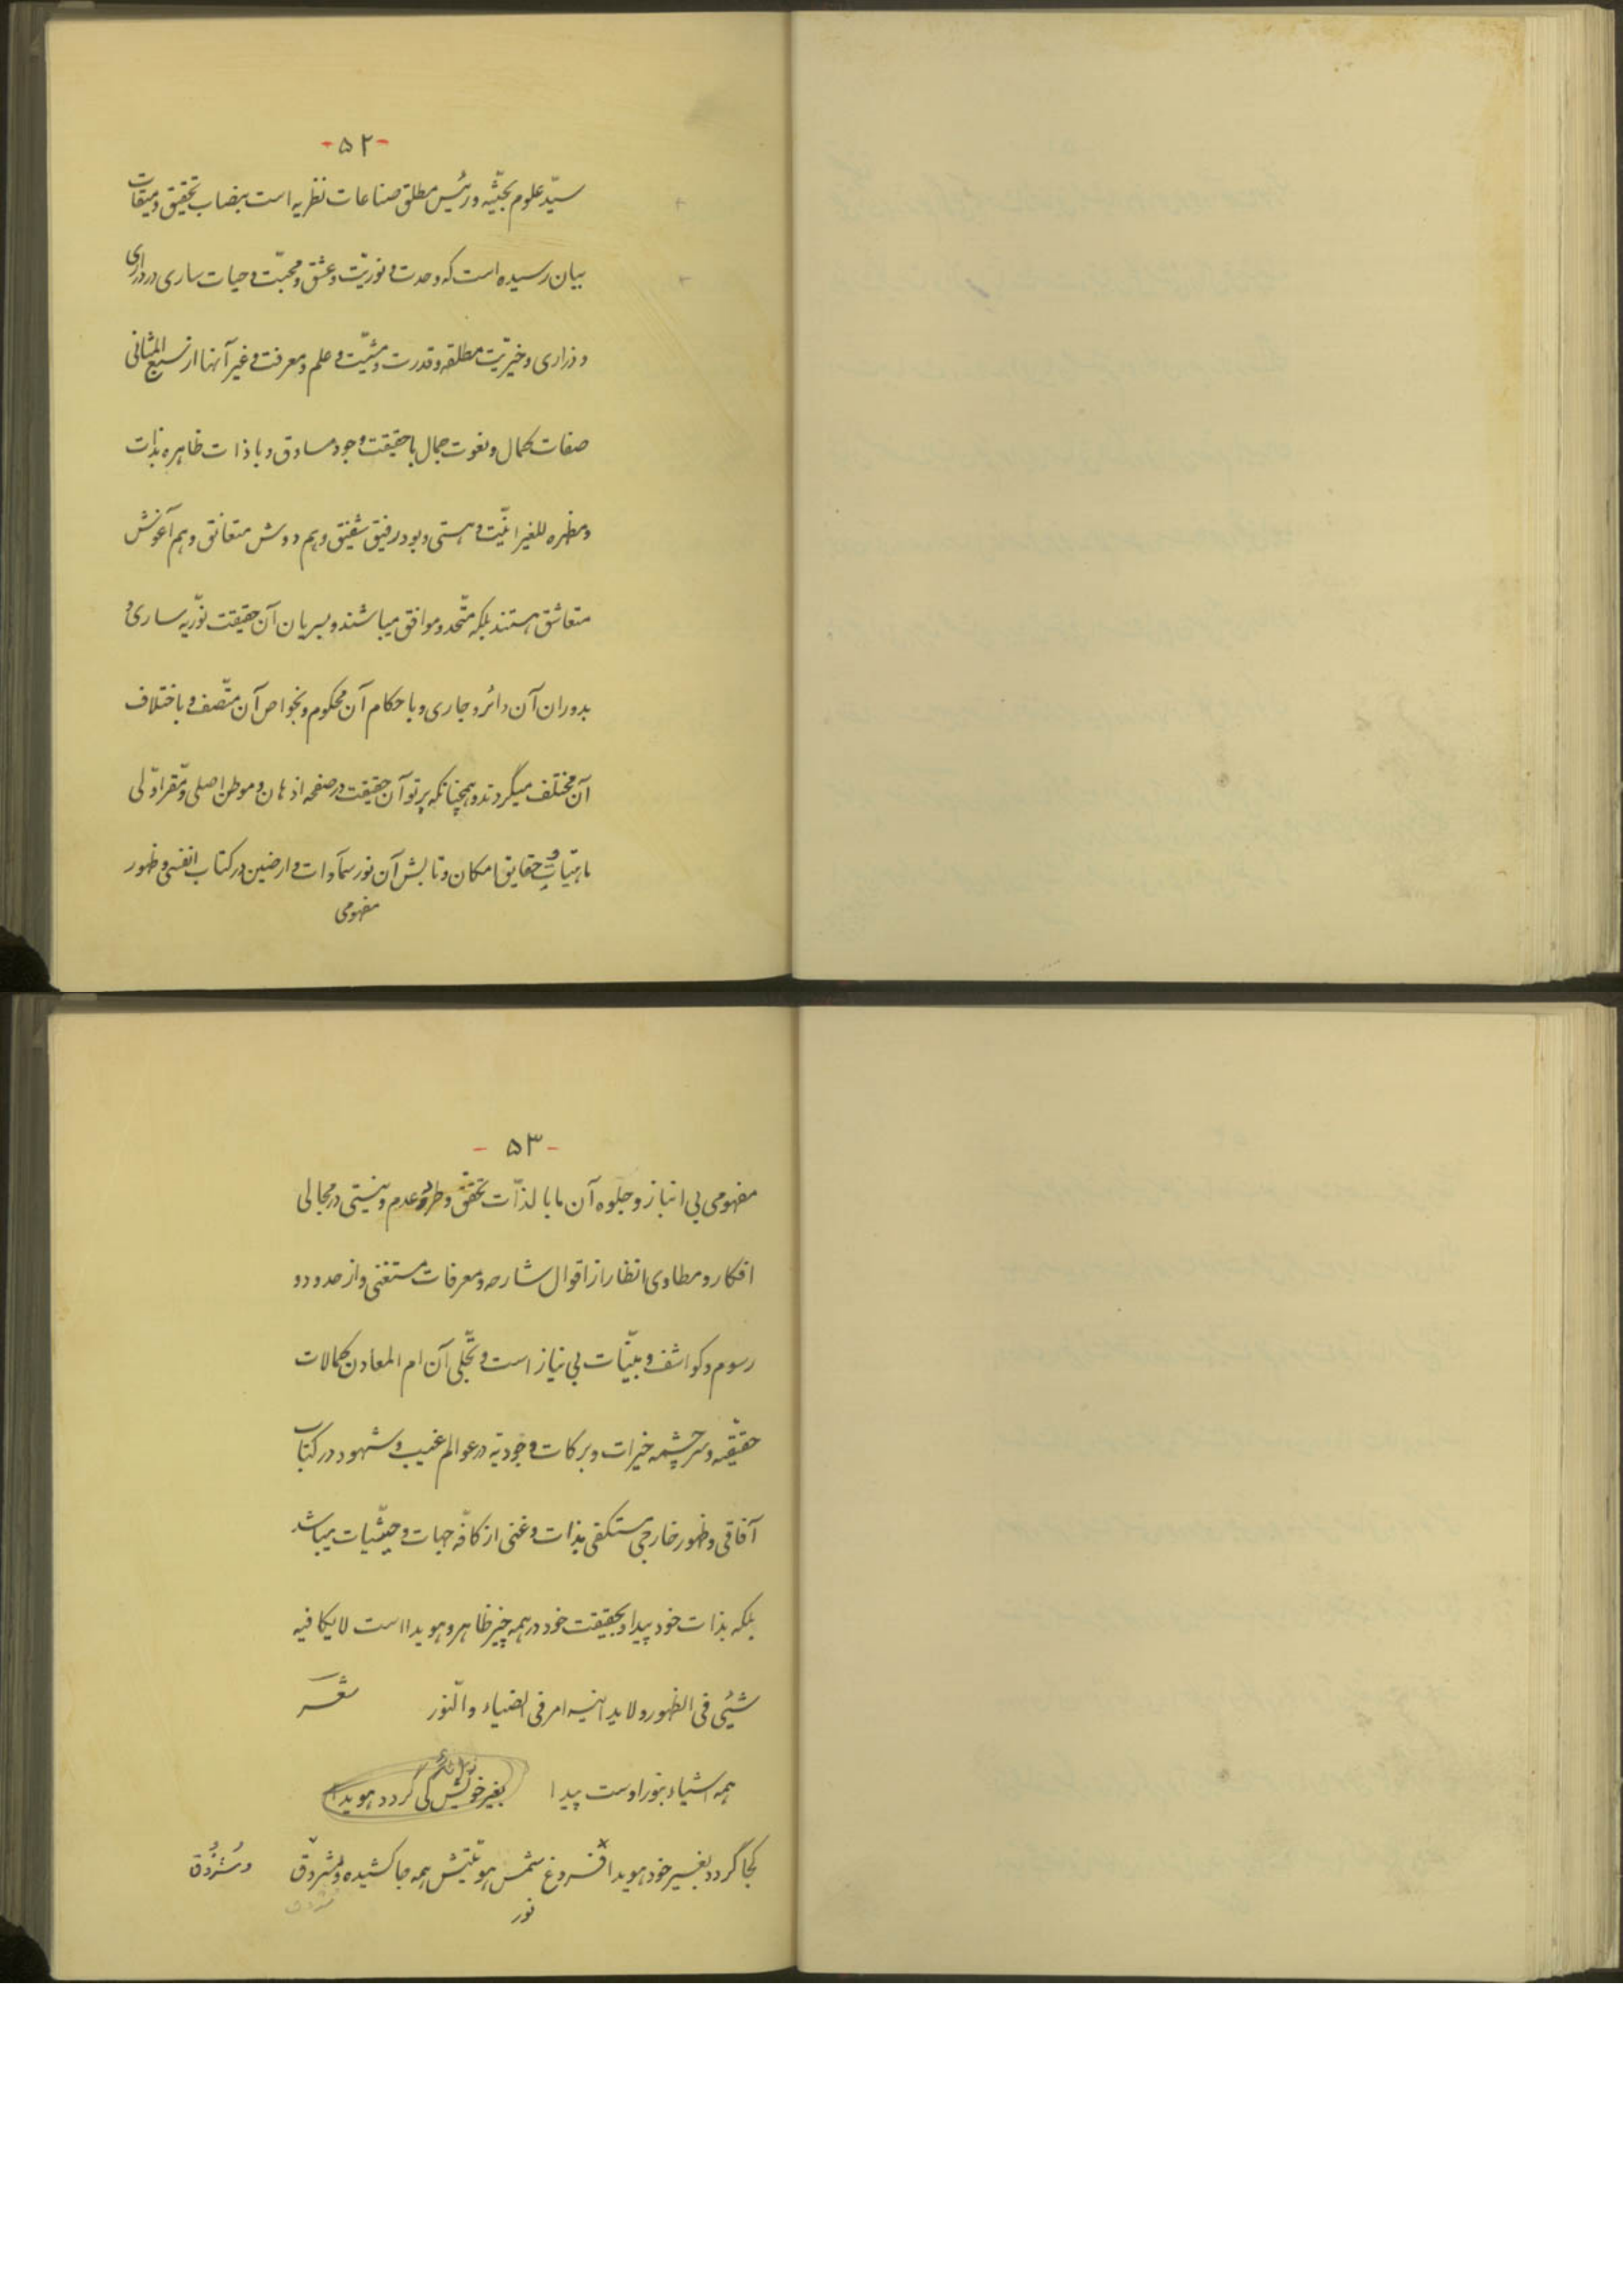 -۵۲-
سیّد علوم بحثیّه و رئیس مطلق صناعات نظریه است بنصاب تحقیق و میقات
بیان رسیده است که وحدت و نوریّت و عشق و محبّت و حیات ساری در دراری
و ذراری و خیریّت مطلقه و قدرت و مشیّت و علم و معرفت و غیر آنها از سبع المثانی
صفات کمال و نعوت جمال با حقیقت وجود مساوق و با ذات ظاهره بذات
و مظهره للغیر انیّت و هستی و بود رفیق شفیق و هم دوش متعانق و هم آغوش
متعاشق هستند بلکه متّحد و موافق میباشند و بسریان آن حقیقت نوّریه ساری و
بدوران آن دائر و جاری و باحکام آن محکوم و بخواص آن متّصف و باختلاف
آن مختلف میگردند و همچنانکه پرتو آن حقیقت در صفحه اذهان و موطن اصلی و مقرّ اوّلی
ماهیّات و حقایق امکان و تابش آن نور سمآوات و ارضین در کتاب انفسی و ظهور
مفهومی
- ۵۳ -
مفهومی بی انباز و جلوه آن ما بالذّات تحقّق و طرد عدم و نیستی در مجالی
افکار و مطاوی انظار از اقوال شارحه و معرفات مستغنی و از حدود و
رسوم و کواشف و بیّنات بی نیاز است و تجّلی آن ام المعادن کمالات
حقیقّه و سرچشمه خیرات و برکات وجودیّه در عوالم غیب و شهود در کتاب
آفاقی و ظهور خارجی مستکفی بذات و غنی از کافّه جهات و حیثّیات میباشد
بلکه بذات خود پیدا و بحقیقت خود در همه چیز ظاهر و هویدا است لا یکافیه
شیئی فی الظهور و لا یدانیه امر فی الضیاء و النّور شعر
همه اشیاء بنور اوست پیدا بغیر خویش کی گردد هویدا
کجا گردد بغیر خود هویدا فروغ شمس هوّیتش همه جا کشیده و شروق و شُرُوق
نور